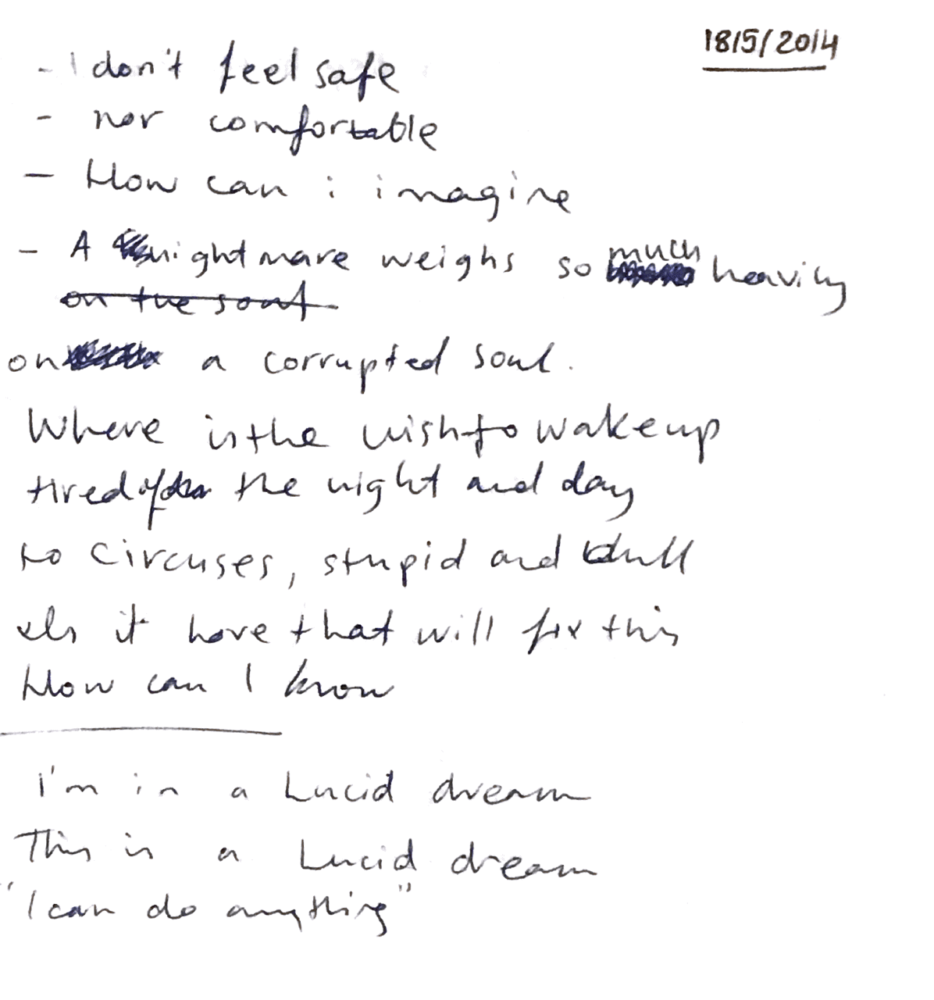 18/5/2014
- I don't feel safe
- nor comfortable
- How can i imagine
- A nightmare weighs so much heavily
on the soul
on a corrupted soul.
Where is the wish to wake up
tired after the night and day
to Circuses, stupid and dull
it that will fix this
How can I know
I'm in a Lucid dream
This is a Lucid dream
"I can do anything"